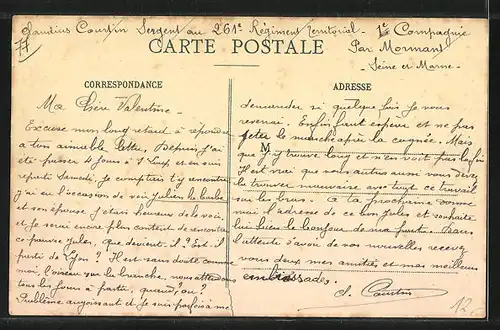 Claudius Courtin Sergent au 261e Régiment Territorial - 1e Compagnie
77
CARTE POSTALE
Par Mormant
Seine et Marne -
CORRESPONDANCE
ADRESSE
Ma Chère Valentine -
Excuse mon long retard à répondre
à ton aimable lettre, Depuis, j'ai
été passer 4 jours à et en suis
reparti Samedi, Je comptais t'y rencontrer
j'ai eu l'occasion de voir Julien le barbu
et son épouse j'étais heureux de le voir,
et je serai encore plus content de rencontrer
ce pauvre Jules, que devient-il ? Est-il
parti de Lyon ? Il est sans doute comme
moi, l'oiseau sur la branche, nous attendons
tous les jours à partir, quand, où ?
Problème angoissant et je suis parfois à me
demander si quelque fois je vous
reverrai. Enfin faut espérer et ne pas
jeter le manche après la cognée. Mais
M
que j'y trouve long et n'en voit pas la fin
Il est vrai que vous autres aussi vous devez
la trouver mauvaise avec tout ce travail
sur les bras. A ta prochaine donne
moi l'adresse de ce bon Jules et souhaite
lui bien le bonjour de ma part. Dans
l'attente d'avoir de vos nouvelles recevez
vous deux mes amitiés et mes meilleurs
embrassades.
C. Courtin
12.-